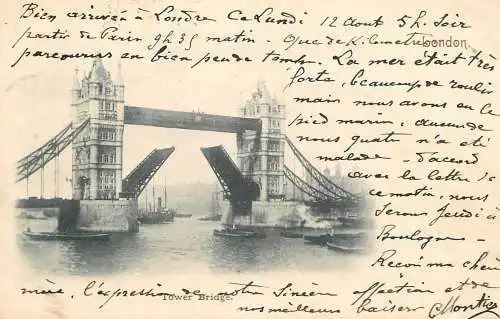 Bien arrivés à Londre Ce Lundi 12 Aout 5h. Soir
partir de Paris 9h 35 matin. Que de Kilometres
London
parcourus en bien peu de temps. La mer était très
forte, beaucoup de roulis
mais nous avons eu le
pied marin, aucune de
nous quatre n'a été
malade. - d'accord
avec la lettre de
ce matin, nous
serons Jeudi à
Boulogne -
Reçois ma chère
mère, l'expression de notre Sincère affection et
Tower Bridge.
nos meilleurs baisers